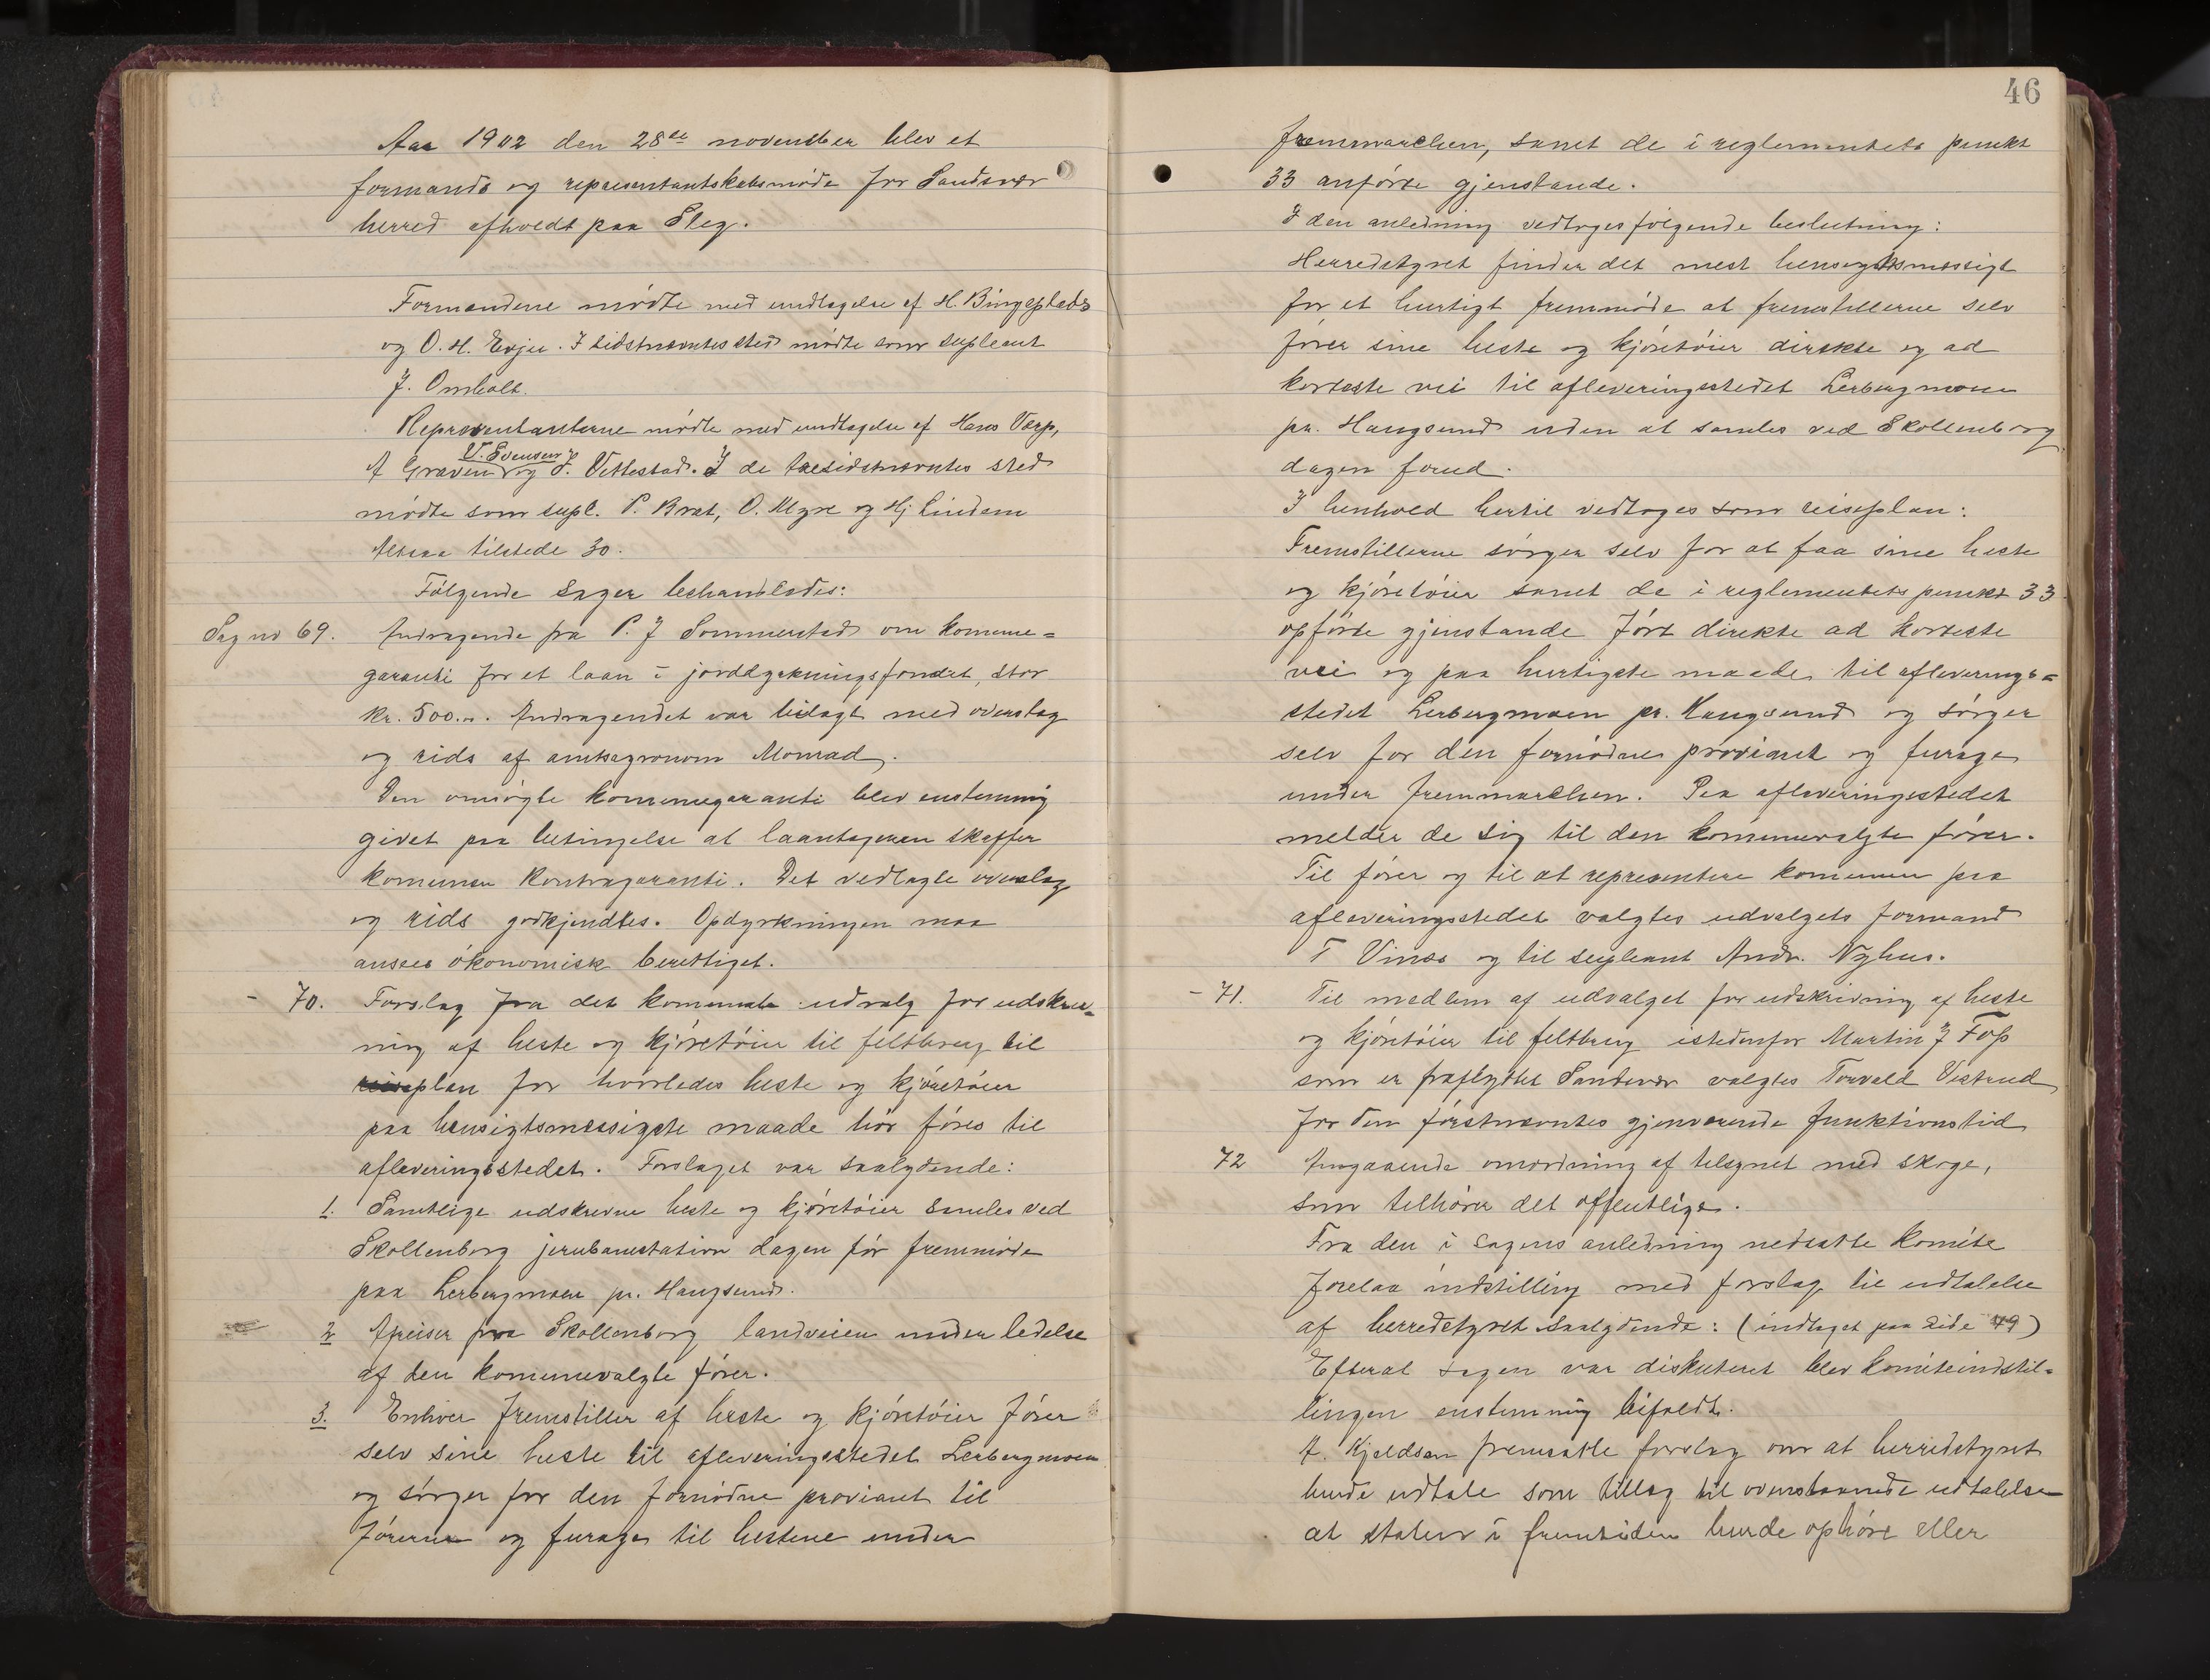 Aar 1902 den 28de november blev et
formands og representantskabsmøde for Sandsvær
herred afholdt paa Steg.
Formændene mødte med undtagelse af H. Bingeplads
og O. H. Evju. I sidstnævntes sted mødte som supleant
J. Omholt.
Representanterne mødte med undtagelse af Hans Værp,
V. Evensen
A Graven og J. Vettestad. I de tresidstnævntes sted
mødte som supl. P. Bræt, O. Myre og Hj Lindem
Altsaa tilstede 30.
Følgende sager behandledes:
Sag no 69. Andragende fra P. J Sommerstad om komune=
garanti for et laan i jorddyrkningsfondet, stor
kr. 500.... Andragendet var bilagt med overslag
og rids af amtsagronom Monrad.
Den omsøgte komunegaranti blev enstemmig
givet paa betingelse at laantageren skaffer
komunen kontragaranti. Det vedlagte overslag
og rids godkjendtes. Opdyrkningen maa
ansees økonomisk berettiget.
- 70. Forslag fra det komunale udvalg for udskriv=
ning af heste og kjøretøier til feltbrug til
reiseplan for hvorledes heste og kjøretøier
paa hensigtsmæssigste maade bør føres til
afleveringsstedet. Forslaget var saalydende:
1. Samtlige udskrevne heste og kjøretøier samles ved
Skollenborg jernbanestation dagen før fremmøde
paa Lerbergmoen pr. Haugsund.
2. Afreiser fra Skollenborg landveien under ledelse
af den komunevalgte fører.
3. Enhver fremstiller af heste og kjøretøier fører
selv sine heste til afleveringsstedet Lerbergmoen
og sørger for den fornødne proviant til
førerne og furage til hestene under
46
fremmarchen, samt de i reglementets punkt
33 anførte gjenstande.
I den anledning vedtoges følgende beslutning:
Herredstyret finder det mest hensigtsmæssigt
for et hurtigt fremmøde at fremstillerne selv
fører sine heste og kjøretøier direkte og ad
korteste vei til afleveringsstedet Lerbergmoen
pr. Haugsund uden at samles ved Skollenborg
dagen forud.
I henhold hertil vedtoges som reiseplan:
Fremstillerne sørger selv for at faa sine heste
og kjøretøier samt de i reglementets punkt 33
opførte gjenstande ført direkte ad korteste
vei og paa hurtigste maade til afleverings=
stedet Lerbergmoen pr. Haugsund og sørger
selv for den fornødne proviant og furage
under fremmarchen. Paa afleveringsstedet
melder de sig til den komunevalgte fører.
Til fører og til at representere komunen paa
afleveringsstedet valgtes udvalgets formand
T Vinæs og til supleant Andr. Nyhus.
- 71. Til medlem af udvalget for udskrivning af heste
og kjøretøier til feltbrug istedenfor Martin J Foss
som er fraflyttet Sandsvær valgtes Torvald Vestrud
for den førstnævntes gjenværende funktionstid
72 Angaaende omordning af tilsynet med skoge,
som tilhører det offentlige.
Fra den i sagens anledning nedsatte komite
forelaa indstilling med forslag til udtalelse
af herredstyret saalydende: (indtaget paa side 49)
Efterat sagen var diskuteret blev komiteindstil=
lingen enstemmig bifaldt.
A. Kjeldsen fremsatte forslag om at herredstyret
burde udtale som tillæg til ovenstaaende udtalelse
at staten i fremtiden burde ophøre eller